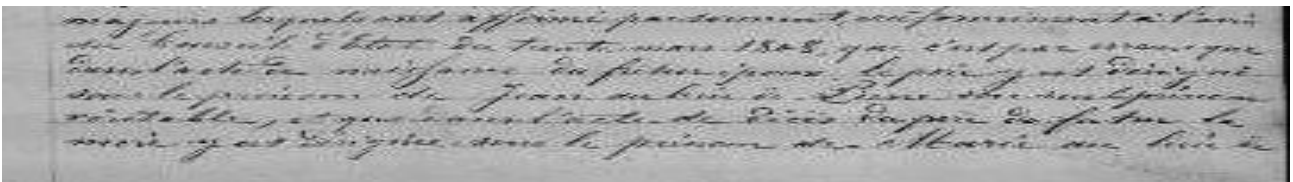 majeurs lesquels ont affirmé par serment, conformément à l'avis
du Conseil d'Etat du trente mars 1808, que c'est par erreur que
dans l'acte de naissance du futur époux, le père y est désigné
sous le prénom de Jean au lieu de Pierre son seul prénom
véritable, et que dans l'acte de décès du père du futur la
mère y est désignée sous le prénom de Marie au lieu de